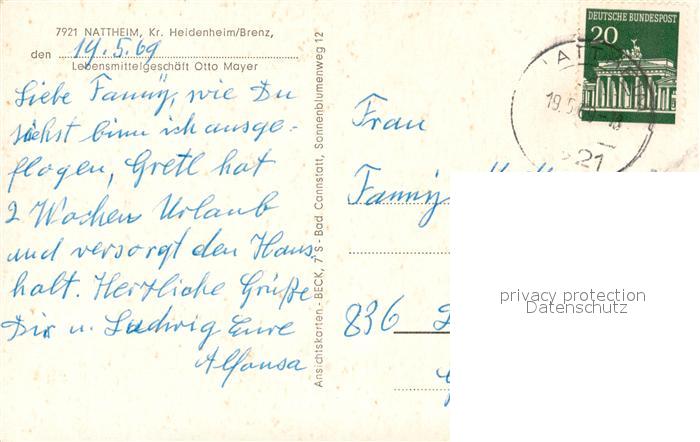 7921 NATTHEIM, Kr. Heidenheim/Brenz,
den 19.5.69
Lebensmittelgeschäft Otto Mayer
Liebe Fanny, wie Du
siehst binn ich ausge-
flogen, Gretl hat
2 Wochen Urlaub
und versorgt den Haus-
halt. Herzliche Grüße
Dir u. Ludwig Eure
Alfonsa
Ansichtskarten - BECK, 7 S - Bad Cannstatt, Sonnenblumenweg 12
DEUTSCHE BUNDESPOST
20
ATT
19.5.69-18
21
Frau
Fanny
836
privacy protection
Datenschutz